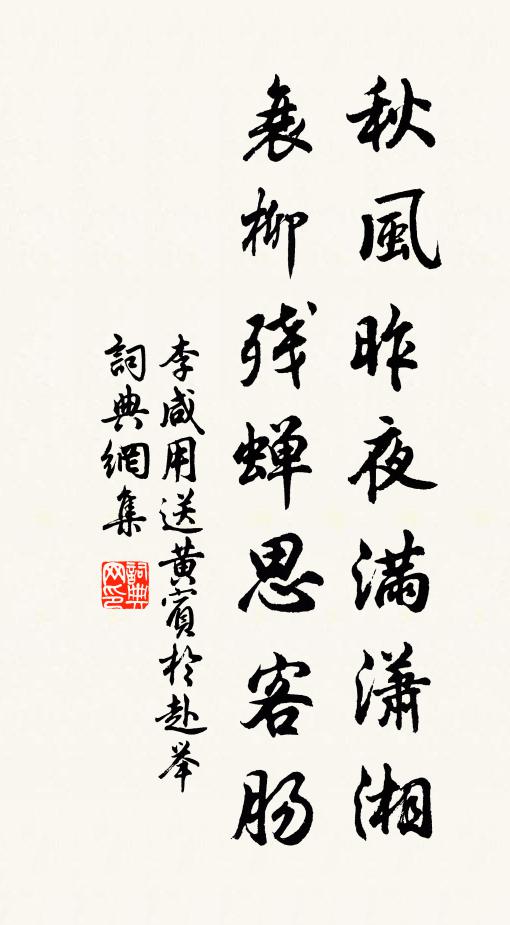 秋風昨夜滿瀟湘
衰柳残蝉思客肠
李咸用送黄賓於赴举
詞典網集
詞典网印